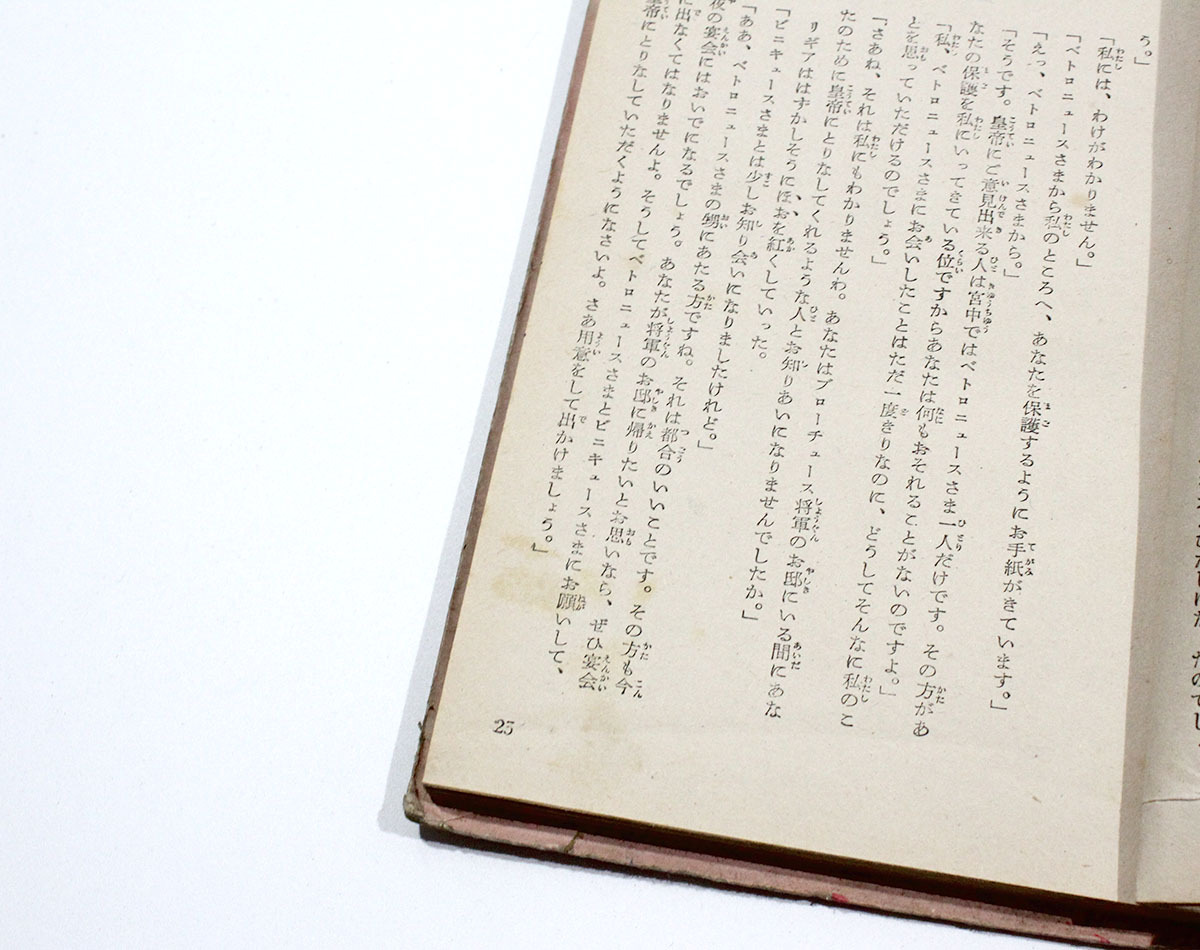 う。」
「私には、わけがわかりません。」
「ペトロニュースさまから私のところへ、あなたを保護するようにお手紙がきています。」
「えっ、ペトロニュースさまから。」
「そうです。皇帝にご意見出来る人は宮中ではペトロニュースさま一人だけです。その方があ
なたの保護を私にいってきている位ですからあなたは何もおそれることがないのですよ。」
「私、ペトロニュースさまにお会いしたことはただ一度きりなのに、どうしてそんなに私のこ
とを思っていただけるのでしょう。」
「さあね、それは私にもわかりませんわ。あなたはプローチュース将軍のお邸にいる間にあな
たのために皇帝にとりなしてくれるような人とお知りあいになりませんでしたか。」
リギアははずかしそうにほおを紅くしていった。
「ビニキュースさまとは少しお知り会いになりましたけれど。」
「ああ、ペトロニュースさまの甥にあたる方ですね。それは都合のいいことです。その方も今
夜の宴会にはおいでになるでしょう。あなたが将軍のお邸に帰りたいとお思いなら、ぜひ宴会
に出なくてはなりませんよ。そうしてペトロニュースさまとビニキュースさまにお願いして、
皇帝にとりなしていただくようになさいよ。さあ用意をして出かけましょう。」
25